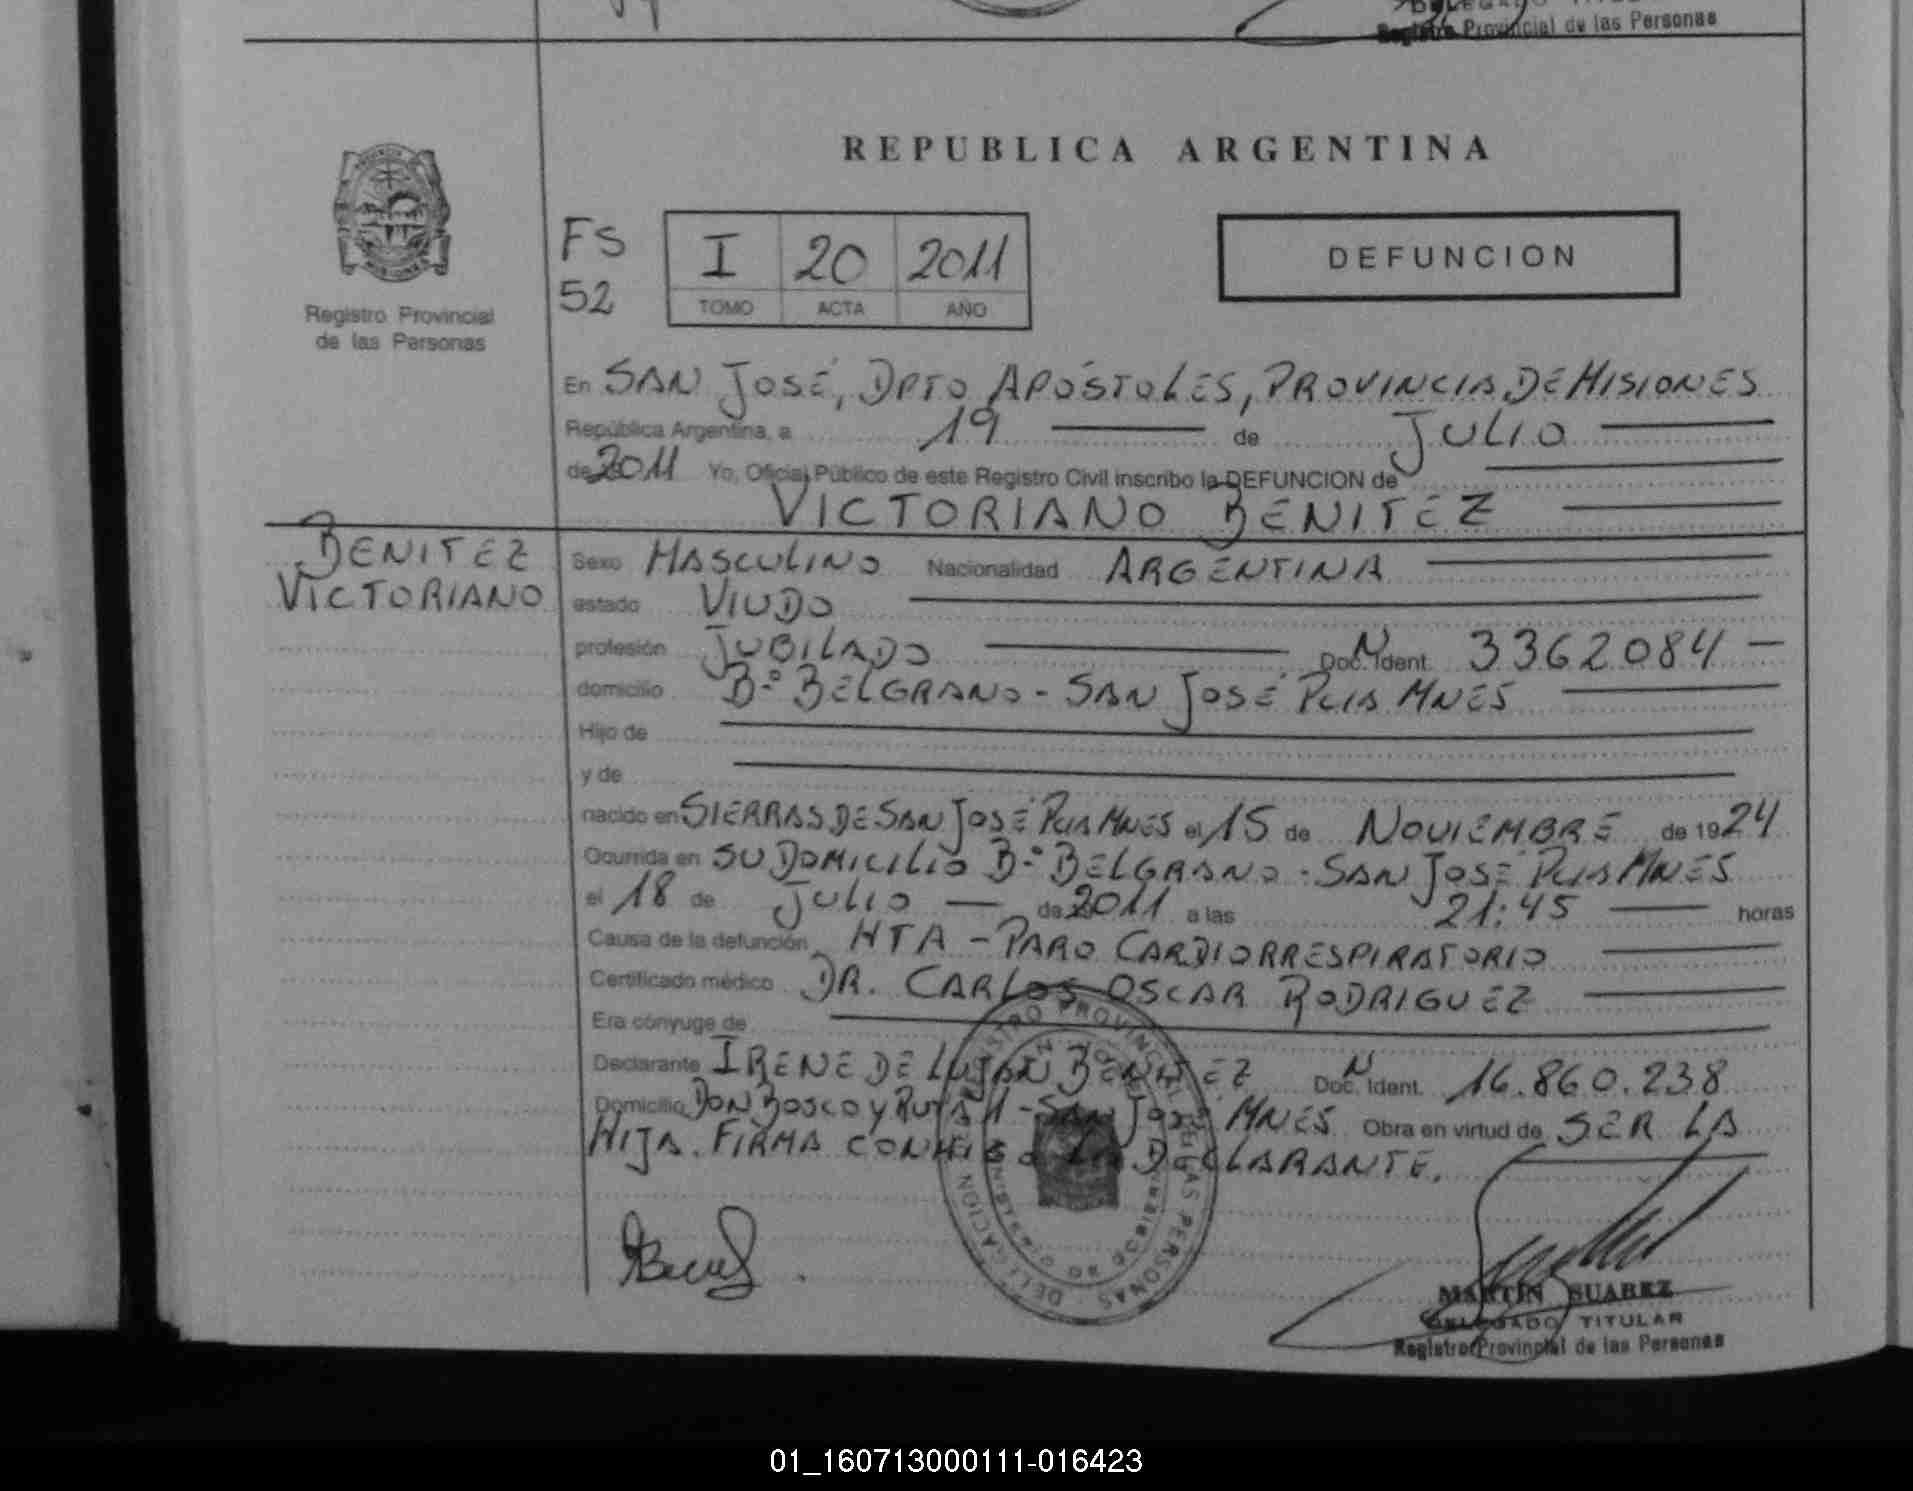 DELEGADO TITULAR
Registro Provincial de las Personas
REPUBLICA ARGENTINA
Registro Provincial
de las Personas
FS
52
I 20 2011
TOMO ACTA AÑO
DEFUNCION
En SAN JOSÉ, DPTO APÓSTOLES, PROVINCIA DE MISIONES
República Argentina, a 19 de JULIO
de 2011 Yo, Oficial Público de este Registro Civil inscribo la DEFUNCION de
VICTORIANO BENITEZ
BENITEZ
VICTORIANO
Sexo MASCULINO Nacionalidad ARGENTINA
estado VIUDO
profesión JUBILADO Doc. Ident. N 3362084 -
domicilio Bº BELGRANO - SAN JOSÉ PCIA MNES
Hijo de
y de
nacido en SIERRAS DE SAN JOSÉ PCIA MNES el 15 de NOVIEMBRE de 1924
Ocurrida en SU DOMICILIO Bº BELGRANO - SAN JOSÉ PCIA MNES
el 18 de JULIO de 2011 a las 21:45 horas
Causa de la defunción HTA - PARO CARDIORRESPIRATORIO
Certificado médico DR. CARLOS OSCAR RODRIGUEZ
Era cónyuge de
Declarante IRENE DE LUJAN BENITEZ Doc. Ident. N 16.860.238
Domicilio DON BOSCO Y RUTA 1 - SAN JOSÉ MNES Obra en virtud de SER LA
HIJA. FIRMA CONMIGO LA DECLARANTE.
REGISTRO PROVINCIAL DE LAS PERSONAS - DELEGACION
MINISTERIO DE GOBIERNO
MARTIN SUAREZ
DELEGADO TITULAR
Registro Provincial de las Personas
01_160713000111-016423